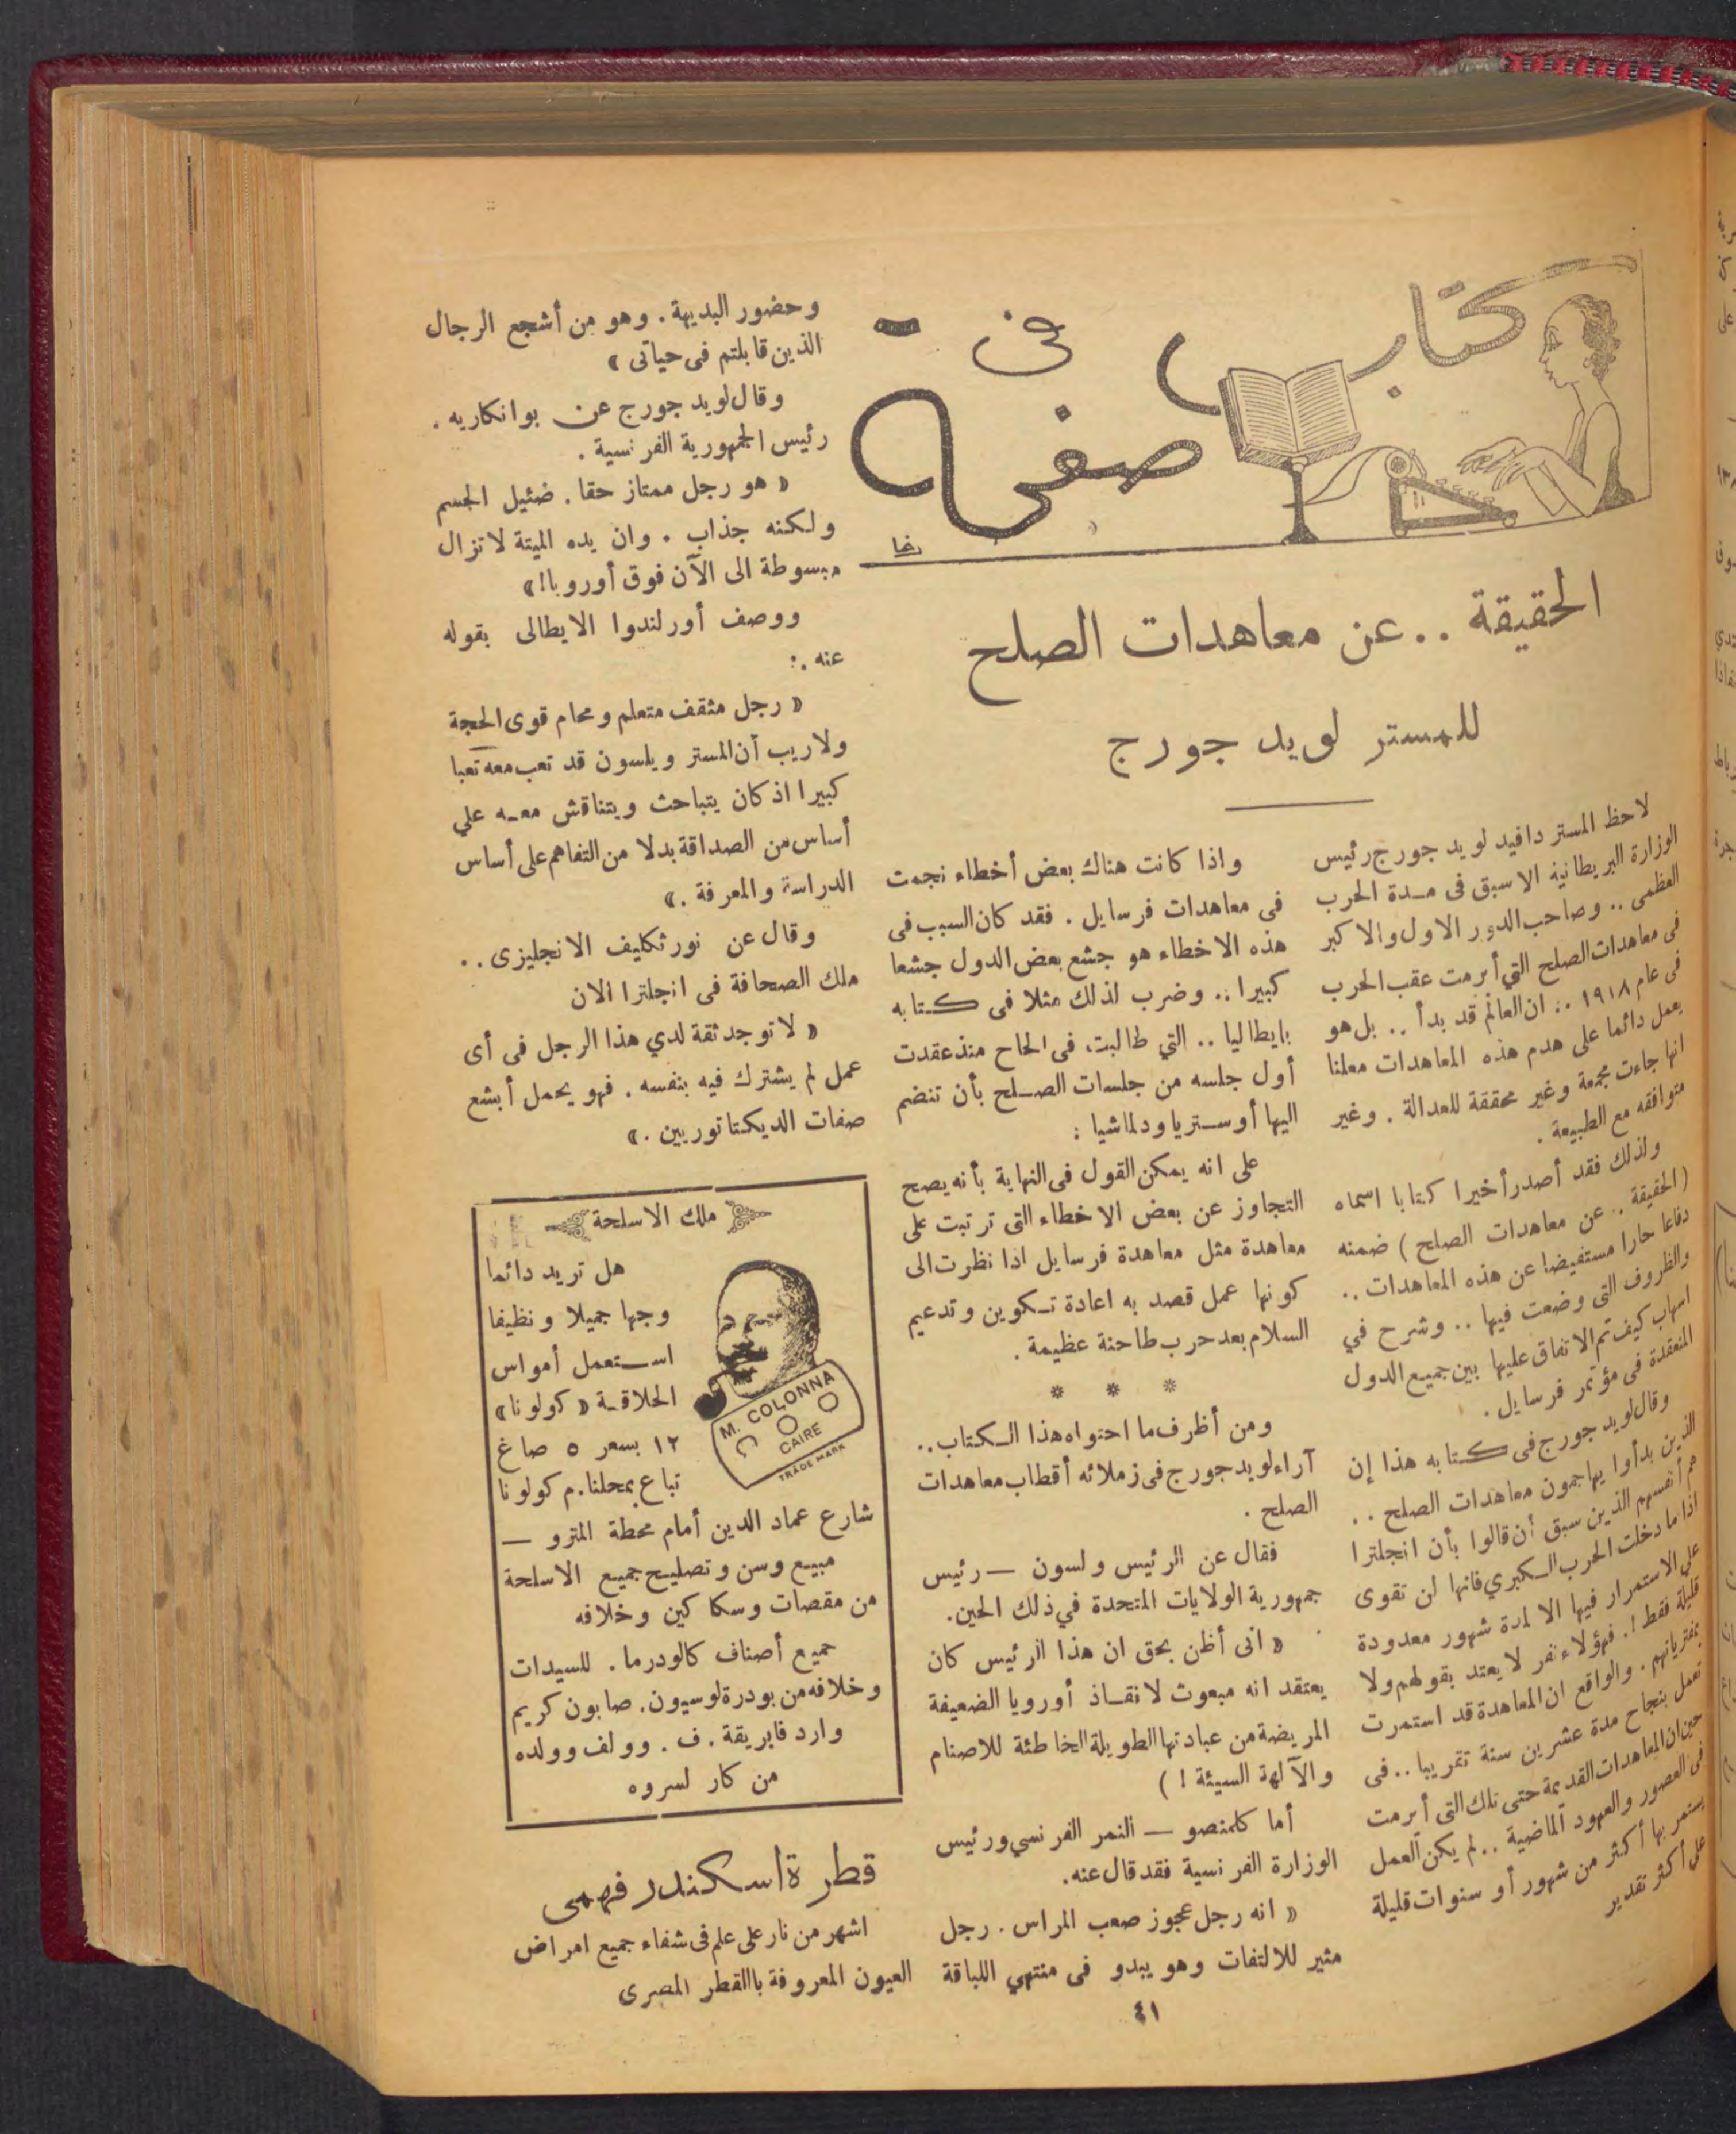 كتاب
فى
صفحة
رخا
الحقيقة .. عن معاهدات الصلح
للمستر لويد جورج
لاحظ المستر دافيد لويد جورج رئيس
الوزارة البريطانية الاسبق فى مدة الحرب
العظمى .. وصاحب الدور الاول والاكبر
فى معاهدات الصلح التي أبرمت عقب الحرب
فى عام ١٩١٨ .: ان العالم قد بدأ .. بل هو
يعمل دائما على هدم هذه المعاهدات معلنا
انها جاءت مجمعة وغير محققة للعدالة . وغير
متوافقه مع الطبيعة .
ولذلك فقد أصدر أخيرا كتابا اسماه
( الحقيقة .. عن معاهدات الصلح ) ضمنه
دفاعا حارا مستفيضا عن هذه المعاهدات ..
والظروف التى وضعت فيها .. وشرح في
اسهاب كيف تم الاتفاق عليها بين جميع الدول
المنعقدة فى مؤتمر فرسايل .
وقال لويد جورج فى كتابه هذا إن
الذين بدأوا يهاجمون معاهدات الصلح ..
هم أنفسهم الذين سبق أن قالوا بأن انجلترا
اذا ما دخلت الحرب الكبري فانها لن تقوى
علي الاستمرار فيها الا لمدة شهور معدودة
قليلة فقط !. فهؤلاء نفر لا يعتد بقولهم ولا
بمفترياتهم . والواقع ان المعاهدة قد استمرت
تعمل بنجاح مدة عشرين سنة تقريبا .. فى
حين ان المعاهدات القديمة حتى تلك التى أبرمت
فى العصور والعهود الماضية .. لم يكن العمل
يستمر بها أكثر من شهور أو سنوات قليلة
على أكثر تقدير
واذا كانت هناك بعض أخطاء نجمت
فى معاهدات فرسايل . فقد كان السبب فى
هذه الاخطاء هو جشع بعض الدول جشعا
كبيرا .. وضرب لذلك مثلا فى كتابه
بايطاليا .. التي طالبت فى الحاح منذ عقدت
أول جلسه من جلسات الصلح بأن تنضم
اليها أوستريا ودلماشيا :
على انه يمكن القول فى النهاية بأنه يصح
التجاوز عن بعض الاخطاء التى ترتبت على
معاهدة مثل معاهدة فرسايل اذا نظرت الى
كونها عمل قصد به اعادة تكوين وتدعيم
السلام بعد حرب طاحنة عظيمة .
* * *
ومن أظرف ما احتواه هذا الكتاب ..
آراء لويد جورج فى زملائه أقطاب معاهدات
الصلح .
فقال عن الرئيس ولسون — رئيس
جمهورية الولايات المتحدة في ذلك الحين .
« انى أظن بحق ان هذا الرئيس كان
يعتقد انه مبعوث لانقاذ أوروبا الضعيفة
المريضة من عبادتها الطويلة الخاطئة للاصنام
والآلهة السيئة ! )
أما كلمنصو — النمر الفرنسي ورئيس
الوزارة الفرنسية فقد قال عنه .
« انه رجل عجوز صعب المراس . رجل
مثير للالتفات وهو يبدو فى منتهي اللباقة
وحضور البديهة . وهو من أشجع الرجال
الذين قابلتم فى حياتى »
وقال لويد جورج عن بوانكاريه .
رئيس الجمهورية الفرنسية .
« هو رجل ممتاز حقا . ضئيل الجسم
ولكنه جذاب . وان يده الميتة لا تزال
مبسوطة الى الآن فوق أوروبا ! »
ووصف أورلندوا الايطالى بقوله
عنه .:
« رجل مثقف متعلم ومحام قوى الحجة
ولا ريب أن المستر ويلسون قد تعب معه تعبا
كبيرا اذ كان يتباحث ويتناقش معه علي
أساس من الصداقة بدلا من التفاهم على أساس
الدراسة والمعرفة . »
وقال عن نورثكليف الانجليزى ..
ملك الصحافة فى انجلترا الان
« لا توجد ثقة لدي هذا الرجل فى أى
عمل لم يشترك فيه بنفسه . فهو يحمل أبشع
صفات الديكتاتوريين . »
ملك الاسلحة
هل تريد دائما
وجها جميلا ونظيفا
استعمل أمواس
الحلاقة « كولونا »
١٢ بسعر ٥ صاغ
تباع بمحلنا . م كولونا
M. COLONNA
CAIRE
TRADE MARK
شارع عماد الدين أمام محطة المترو —
مبيع وسن وتصليح جميع الاسلحة
من مقصات وسكاكين وخلافه
جميع أصناف كالودرما . للسيدات
وخلافه من بودرة لوسيون . صابون كريم
وارد فابريقة . ف . وولف وولده
من كار لسروه
قطرة اسكندر فهمى
اشهر من نار على علم فى شفاء جميع امراض
العيون المعروفة باالقطر المصرى
٤١